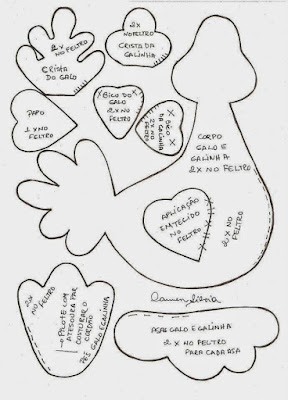 2X
NO FELTRO
CRISTA
DO GALO
2X
NO FELTRO
CRISTA DA
GALINHA
PAPO
1X NO
FELTRO
BICO DO
GALO
2X NO
FELTRO
BICO
DA GALINHA
2X NO
FELTRO
CORPO
GALO E
GALINHA
2X NO FELTRO
APLICAÇÃO
EM TECIDO
NO
FELTRO
2X NO
FELTRO
2X
NO FELTRO
PILOTE COM
ATESOURA PAR
COSTURAR O
CORDÃO
PÉS GALO E GALINHA
ASAS GALO E GALINHA
2X NO FELTRO
PARA CADA ASA